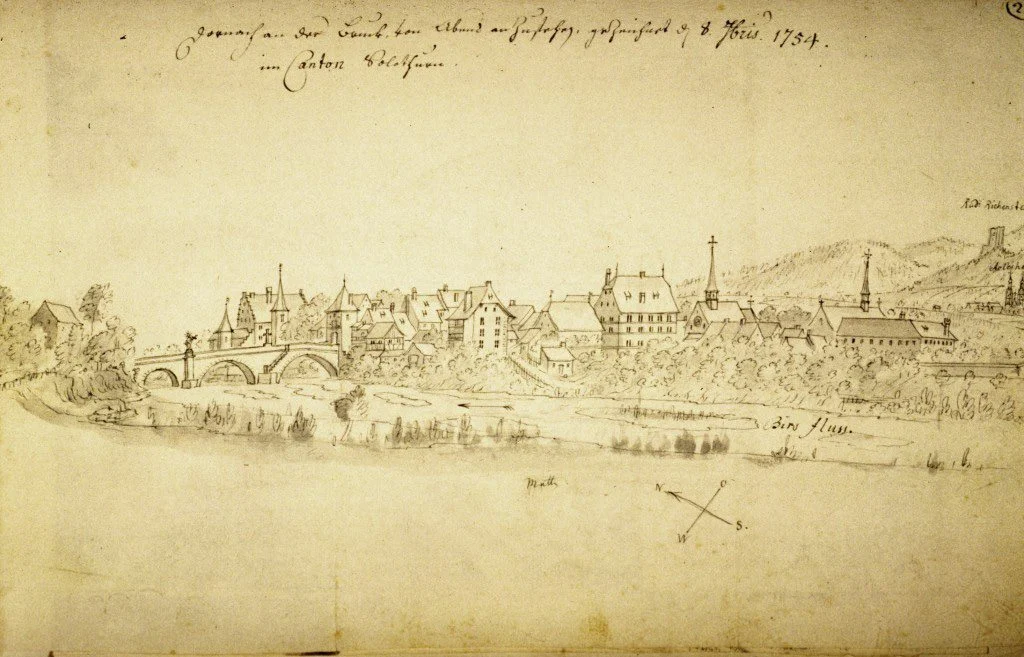 2
Dornach an der Bruck, von Abend anzusehen, gezeichnet d. 8. 7bris. 1754.
im Canton Solothurn.
Birs fluss.
Matten
N
O
W
S.